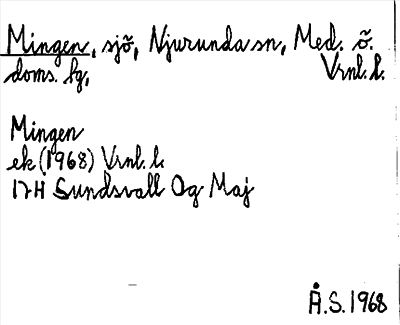 Mingen, sjö, Njurunda sn, Med. ö.
doms. fg, Vrnl. l.
Mingen
ek (1968) Vrnl. l.
17H Sundsvall Og Maj
Å.S. 1968